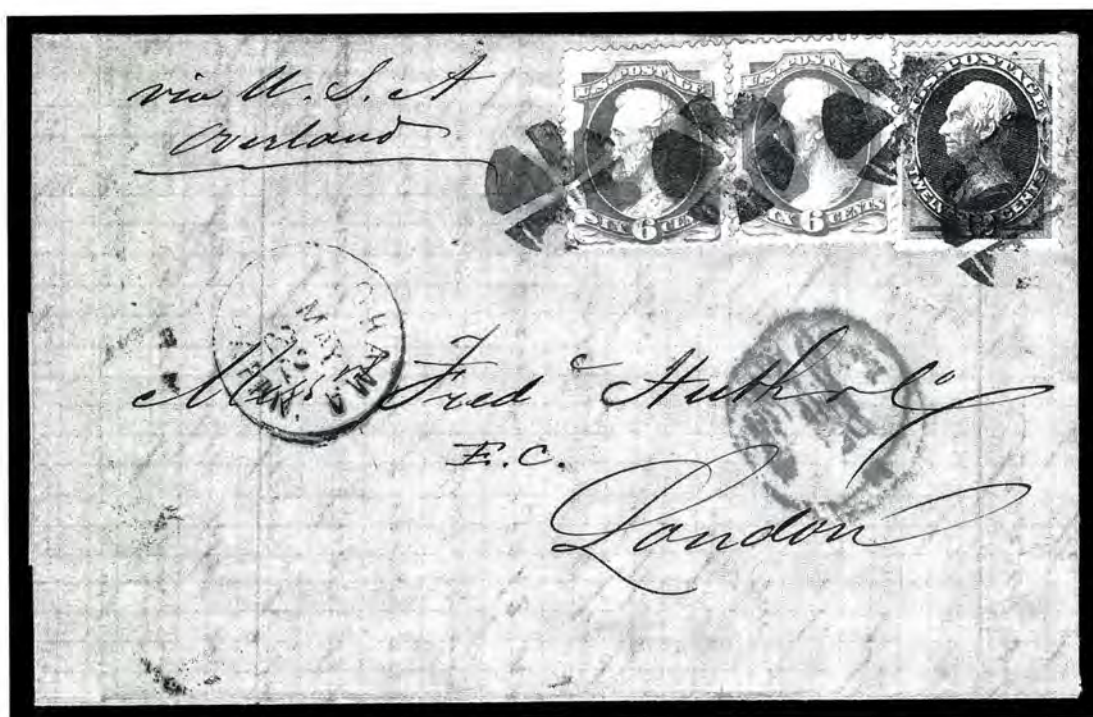 via U. S. A
overland
U.S. POSTAGE
SIX 6 CEN
U.S. POSTAGE
IX 6 CENTS
U.S. POSTAGE
TWELV CENTS
OHAMA
MAY
Messrs Fred Huth & Co
E.C.
London